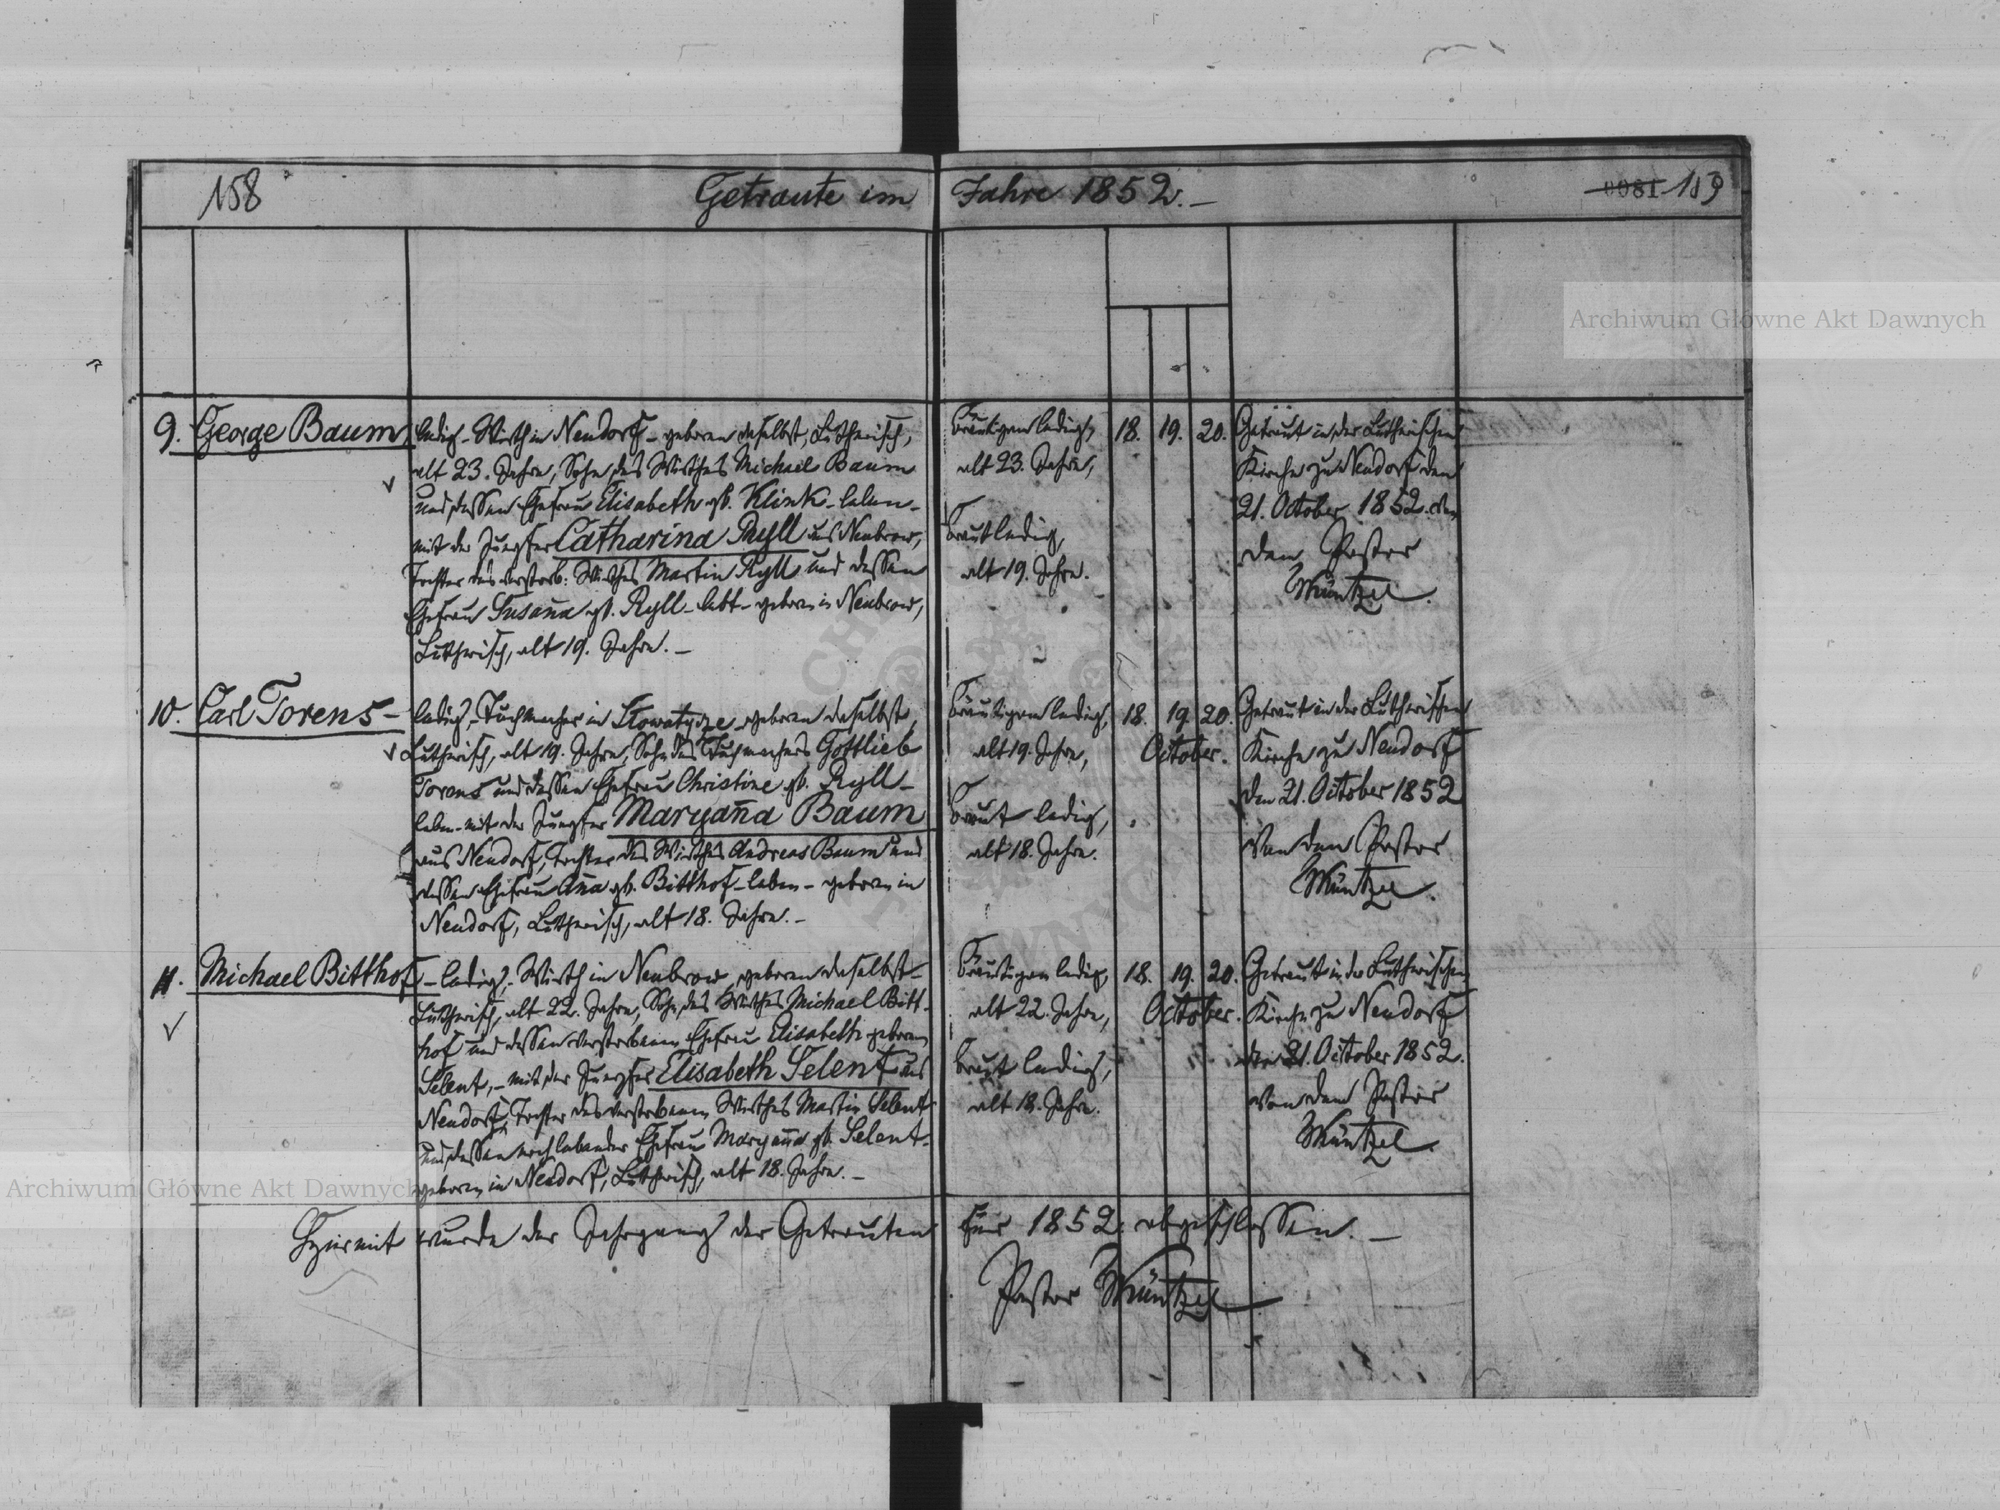 158
Getraute im Jahre 1852. —
0081 159
Archiwum Główne Akt Dawnych
9. George Baum
ledig - Wirth in Neudorf - geboren daselbst, Lutherisch,
alt 23. Jahre, Sohn des Wirthes Michael Baum
und dessen Ehefrau Elisabeth gb. Klink - leben -
mit der Jungfer Catharina Ryll aus Neubrow,
Tochter des verstorb: Wirthes Martin Ryll und dessen
Ehefrau Susaña gb. Ryll - lebt - geboren in Neubrow,
Lutherisch, alt 19. Jahre. —
Bräutigam ledig,
alt 23. Jahre,
Braut ledig,
alt 19. Jahre.
18. 19. 20.
Getraut in der Lutherischen
Kirche zu Neudorf den
21. October 1852. von
den Pastor
Müntzel.
10. Carl Torens -
ledig, Tuchmacher in Slowatycze - geboren daselbst,
Lutherisch, alt 19. Jahre, Sohn des Tuchmachers Gottlieb
Torens und dessen Ehefrau Christine gb. Ryll -
leben - mit der Jungfer Maryaña Baum
aus Neudorf, Tochter des Wirthes Andreas Baum und
dessen Ehefrau Aña gb. Bitthof - leben - geboren in
Neudorf, Lutherisch, alt 18. Jahre. -
Bräutigam ledig,
alt 19. Jahre,
Braut ledig,
alt 18. Jahre.
18. 19. 20.
October.
Getraut in der Lutherischen
Kirche zu Neudorf
den 21. October 1852
von den Pastor
Müntzel.
11. Michael Bitthof
- ledig - Wirth in Neubrow, geboren daselbst -
Lutherisch, alt 22. Jahre, Sohn des Wirthes Michael Bitt-
hof und dessen verstorbenen Ehefrau Elisabeth geboren
Selent, - mit der Jungfer Elisabeth Selent aus
Neudorf, Tochter des verstorbenen Wirthes Martin Selent
und dessen noch lebender Ehefrau Maryaña gb. Selent -
geboren in Neudorf, Lutherisch, alt 18. Jahre. —
Bräutigam ledig,
alt 22. Jahre,
Braut ledig,
alt 18. Jahre.
18. 19. 20.
October.
Getraut in der Lutherischen
Kirche zu Neudorf
den 21. October 1852.
von dem Pastor
Müntzel.
Archiwum Główne Akt Dawnych
Hiermit wurde der Jahrgang der Getrauten für 1852. abgeschlossen. —
Pastor Müntzel